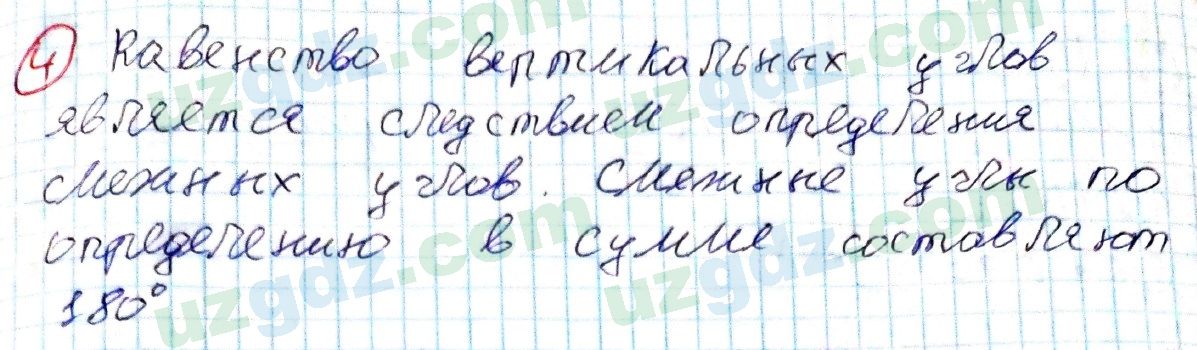 4 Равенство вертикальных углов
является следствием определения
смежных углов. Смежные углы по
определению в сумме составляют
180°
uzgdz.com